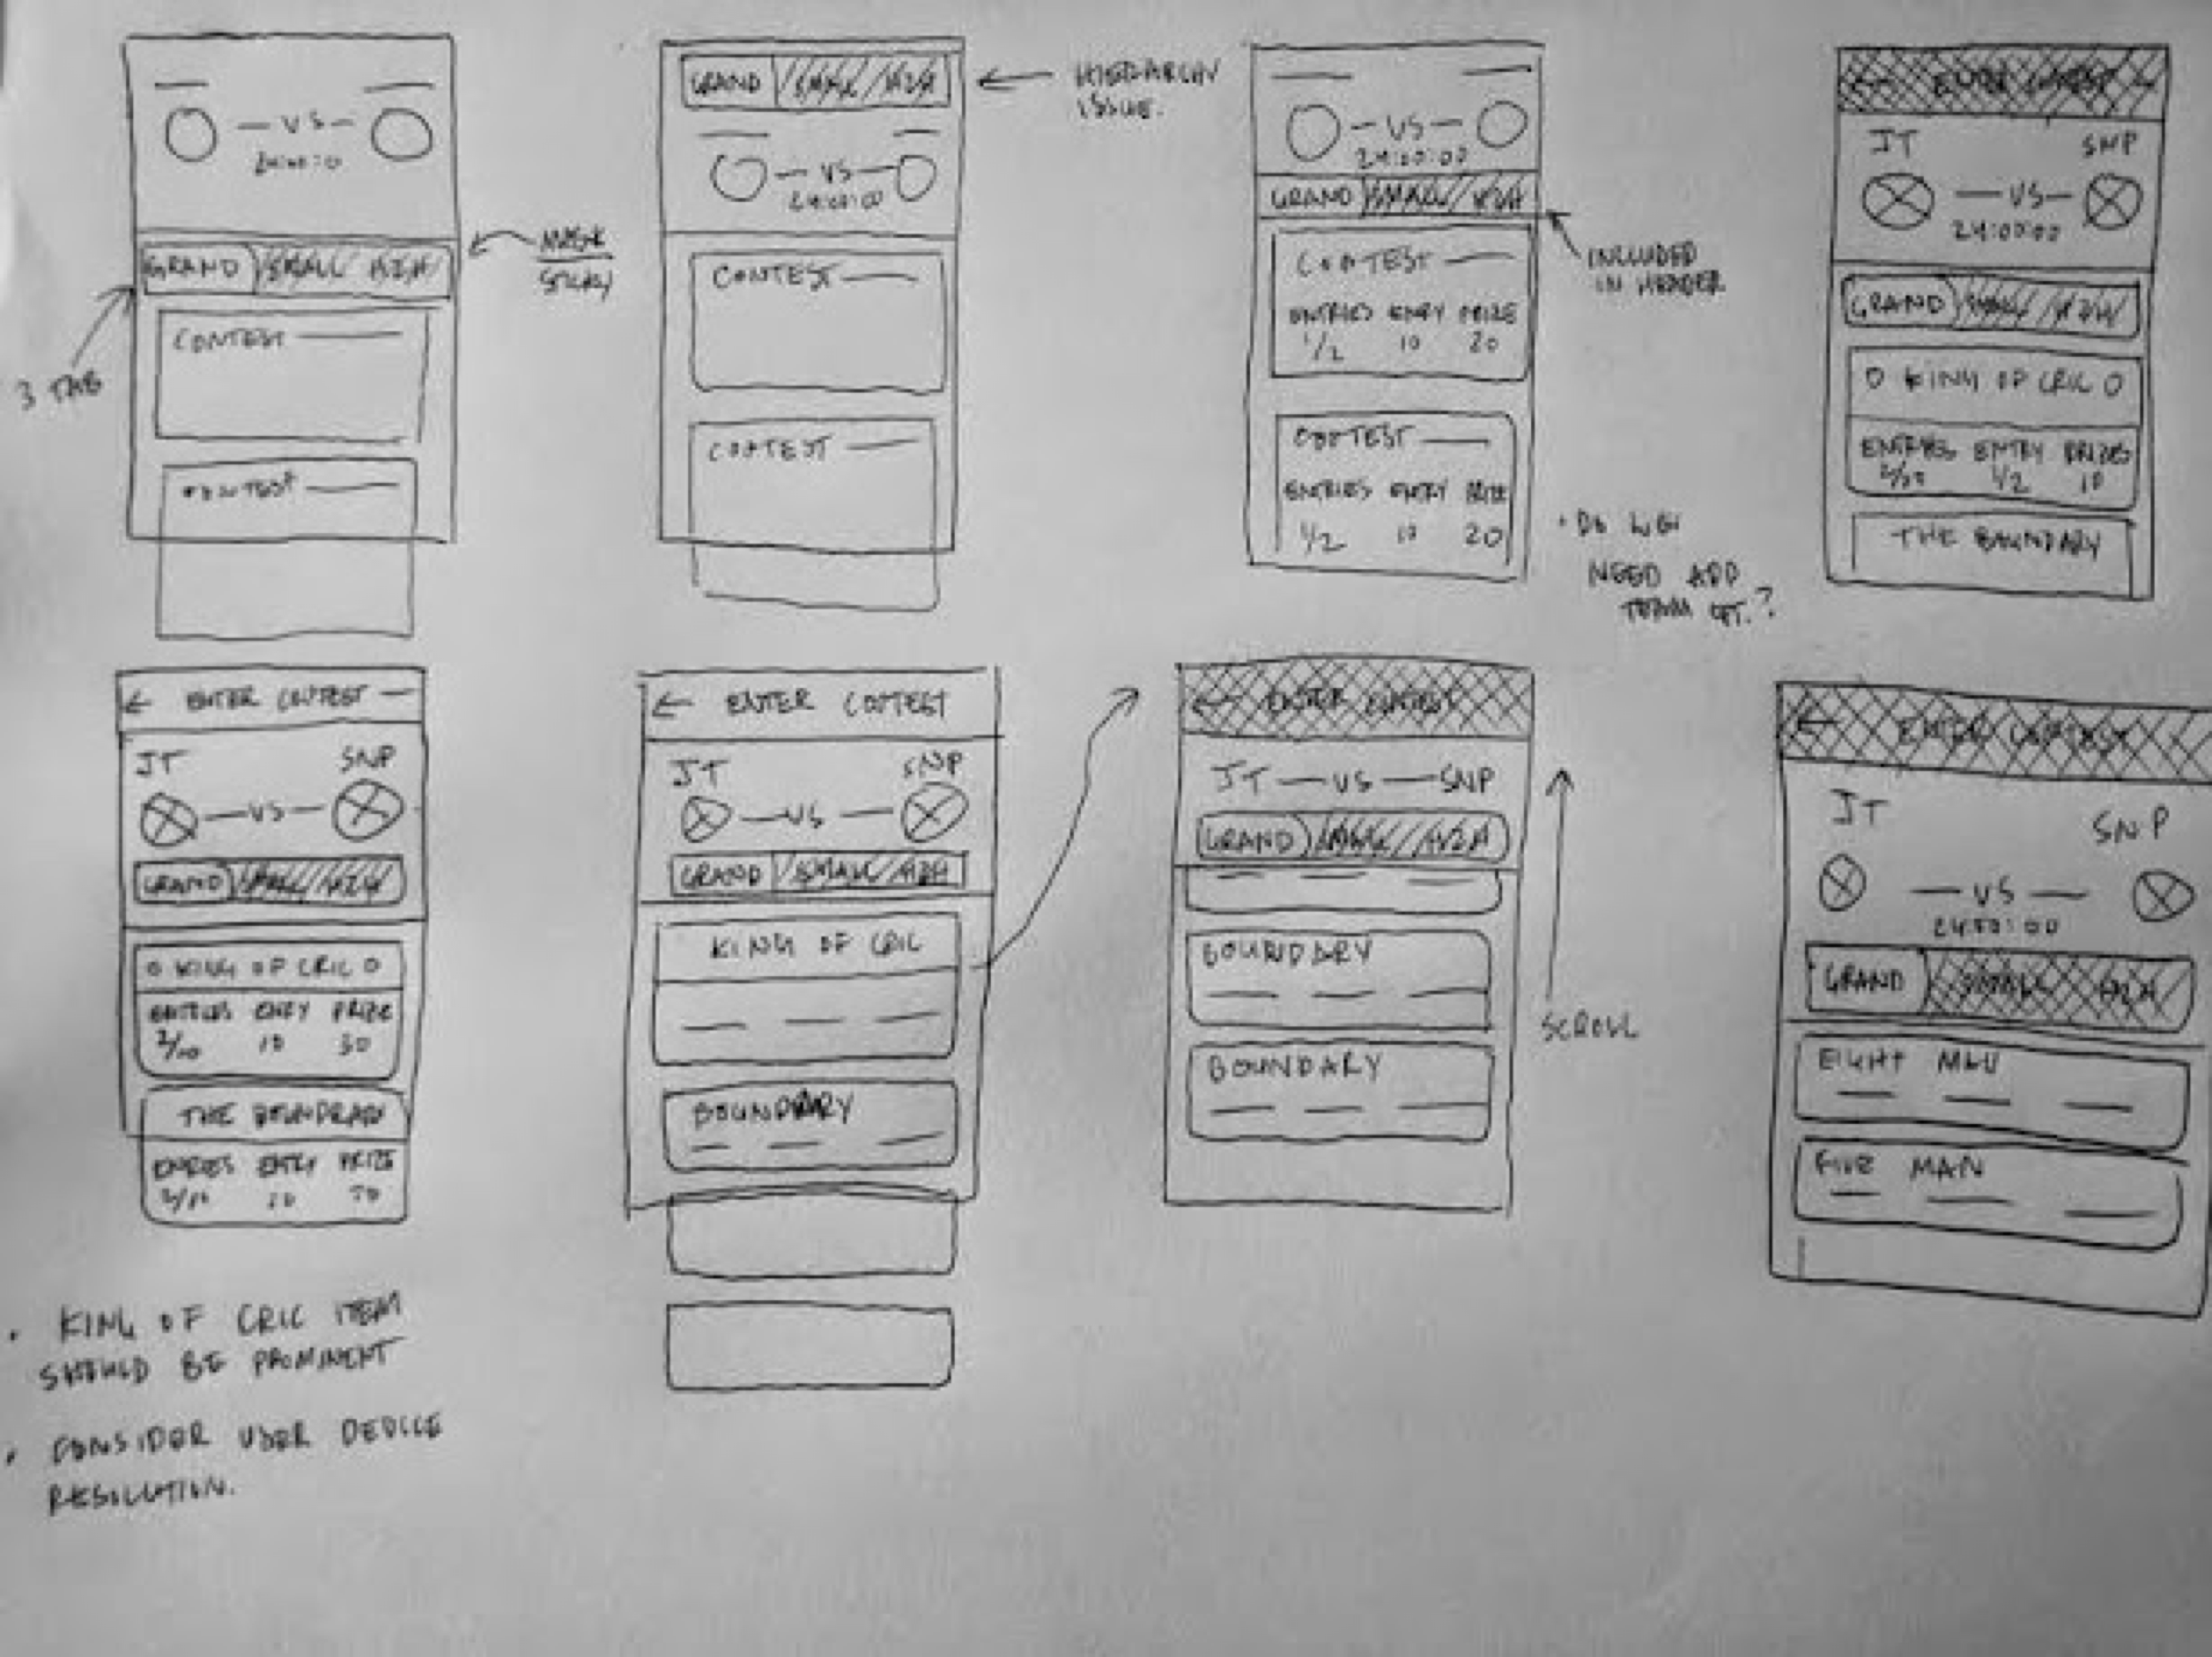 — VS —
GRAND SMALL H2H
CONTEST
CONTEST
3 TAB
MASK
STICKY
GRAND SMALL H2H
— VS —
24:00:00
CONTEST
CONTEST
HIERARCHY
ISSUE.
— VS —
24:00:00
GRAND SMALL H2H
CONTEST
ENTRIES ENTRY PRIZE
1/2 10 20
CONTEST
ENTRIES ENTRY PRIZE
1/2 10 20
INCLUDED
IN HEADER
• DO WE
NEED ADD
TEAM OPT.?
← ENTER CONTEST
JT SNP
— VS —
24:00:00
GRAND SMALL H2H
KING OF CRIC
ENTRIES ENTRY PRIZES
1/2 10
THE BOUNDARY
← ENTER CONTEST
JT SNP
— VS —
GRAND SMALL H2H
KING OF CRIC
ENTRIES ENTRY PRIZE
2/10 10 30
THE
ENTRIES ENTRY PRIZE
2/10 10
← ENTER CONTEST
JT SNP
— VS —
GRAND SMALL H2H
KING OF CRIC
BOUNDARY
← ENTER CONTEST
JT — VS — SNP
GRAND SMALL H2H
BOUNDARY
BOUNDARY
SCROLL
← ENTER CONTEST
JT SNP
— VS —
24:00:00
GRAND SMALL H2H
EIGHT
FIVE MAN
• KING OF CRIC ITEM
SHOULD BE PROMINENT
• CONSIDER USER DEVICE
RESOLUTION.